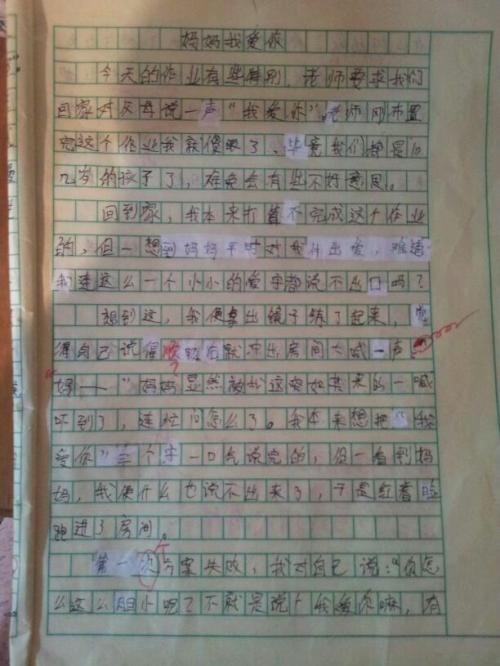 妈妈我爱你
今天的作业有些特别，老师要求我们
回家对父母说一声“我爱你”，老师刚布置
完这个作业我就傻眼了，毕竟我们都是10
几岁的孩子了，难免会有些不好意思。
回到家，我本来打算不完成这个作业
的，但一想到妈妈平时对我付出爱，难道
我连这么一个小小的爱字都说不出口吗？
想到这，我便拿出镜子练了起来，觉
得自己说得顺畅后就冲出房间大喊一声
妈——”妈妈显然被我这突如其来的一喊
吓到了，连忙问怎么了。我本来想把“我
爱你”三个字一口气说完的，但一看到妈
妈，我便什么也说不出来了，于是红着脸
跑进了房间
第一次方案失败，我对自己说：“你怎
么这么胆小呢？不就是说个我爱你嘛，有